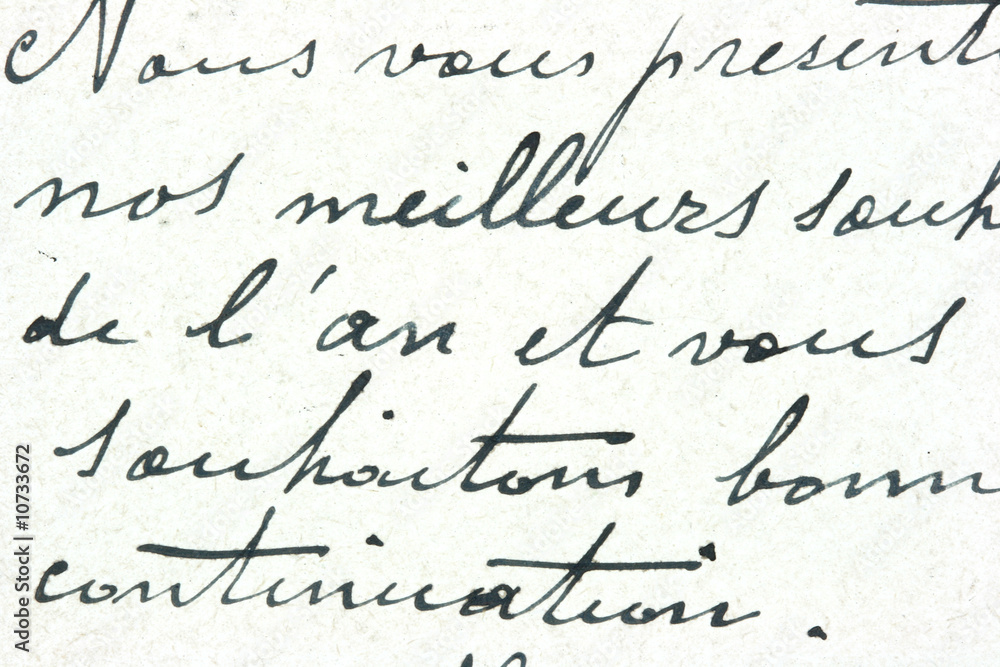 Nous vous present
nos meilleurs souh
de l'an et vous
souhaitons bonn
continuation.
Adobe Stock | #10733672